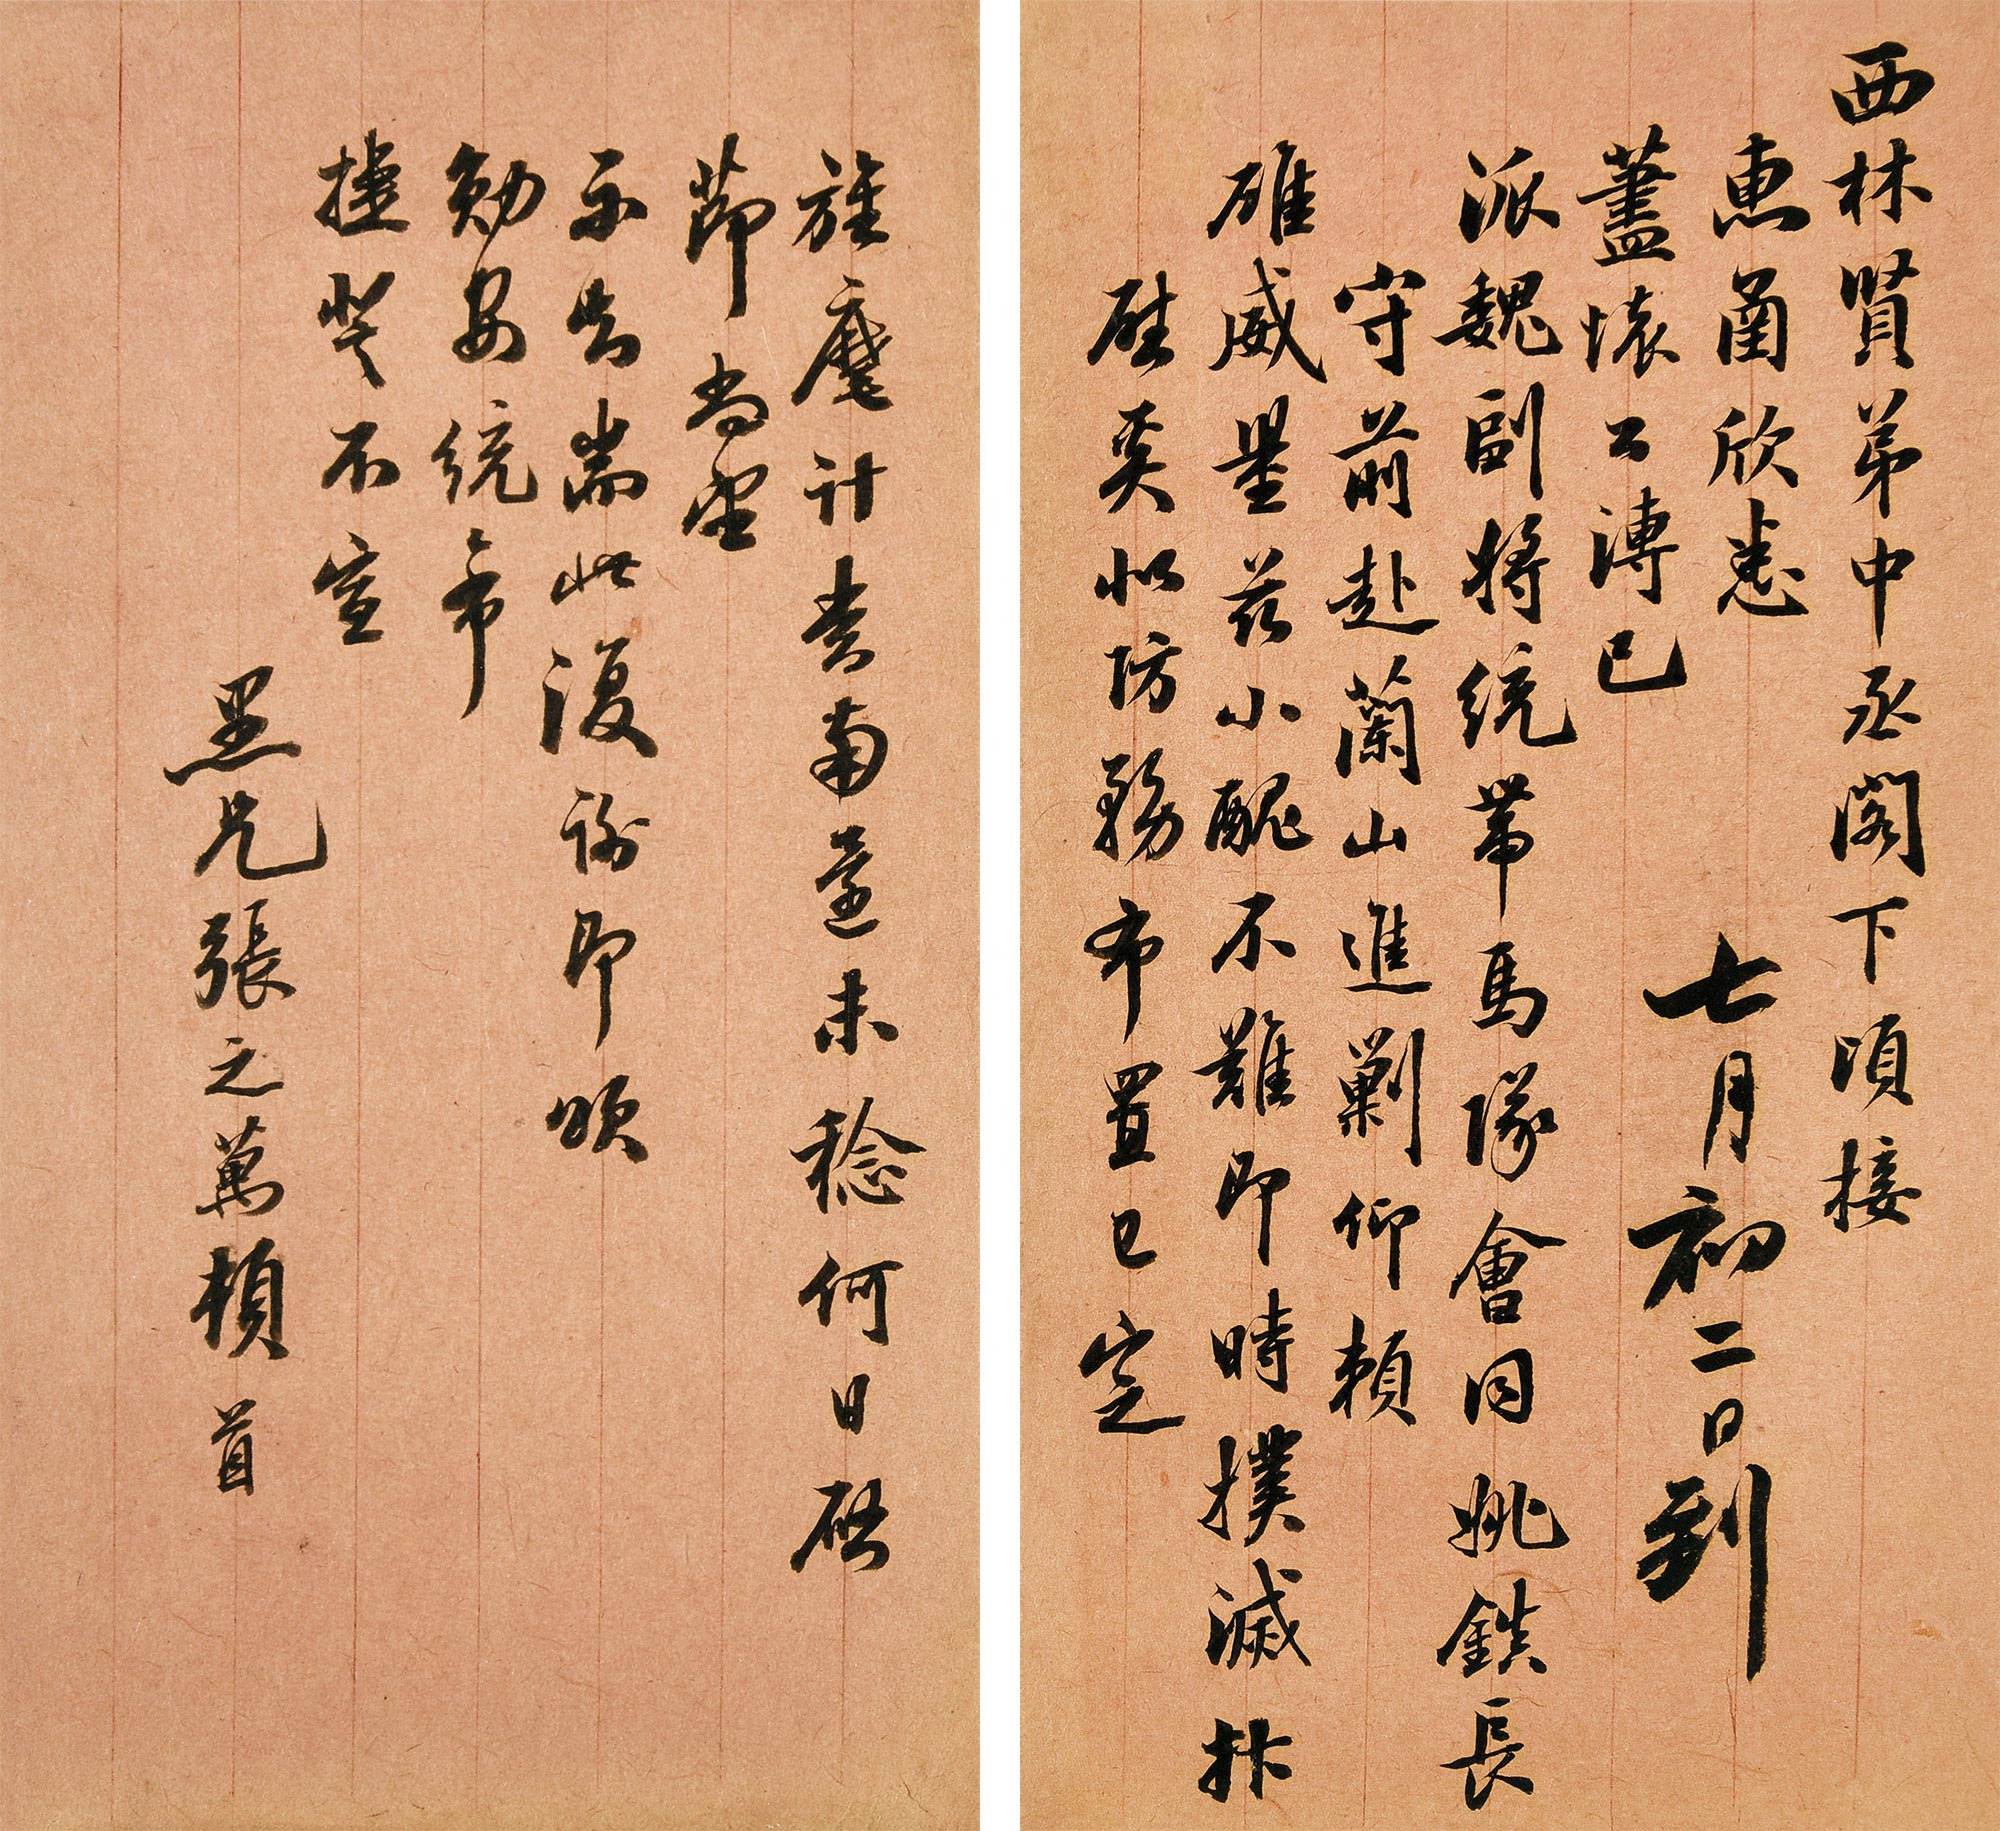 西林賢弟中丞閣下頃接
惠函欣悉
藎懷公溥已
七月初二日到
派魏副將統帶馬隊會同姚鎮長
守前赴蘭山進剿仰賴
雄威量茲小醜不難即時撲滅抃
奚似防務布置已定
旌麾計南還未稔何日啟
節尚望
示告耑此復謝即頌
勛安統希
捷不宣
愚兄張之萬頓首